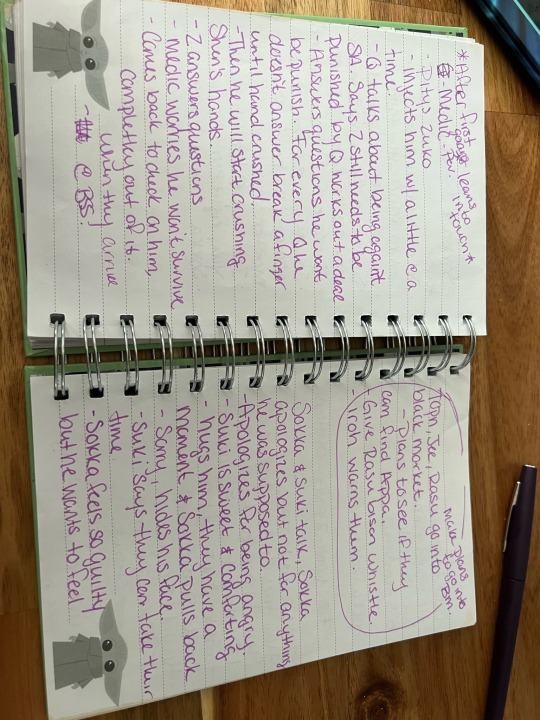 *After first
group leans into
town*
- Medic. Pov.
- Pitys Zuko
- injects him w/ a little @ a
time.
- Q talks about being against
SA. Says Z still needs to be
punished by Q works out a deal
- Answers questions he wont
be punish. For every Q he
doesn't answer break a finger
until hand crushed.
-Then he will start crushing
Shin's hands.
- Z answers questions
- Medic worries he won't survive
- Comes back to check on him,
completly out of it.
when they arrive
- @ BS.
make plans
to go into
BSm.
Toph, Jee, Dasu go into
black market.
- Plans to see if they
can find Appa.
- Give Dasu bison whistle
- Iroh warns them.
Sokka & Suki talk, Sokka
apologizes but not for anything
he was supposed to.
-Apologizes for being angry
- Suki is sweet & comforting
- hugs him, they have a
moment & Sokka pulls back
- Sorry, hides his face.
- Suki says they can take their
time,
- Sokka feels so guilty
but he wants to feel